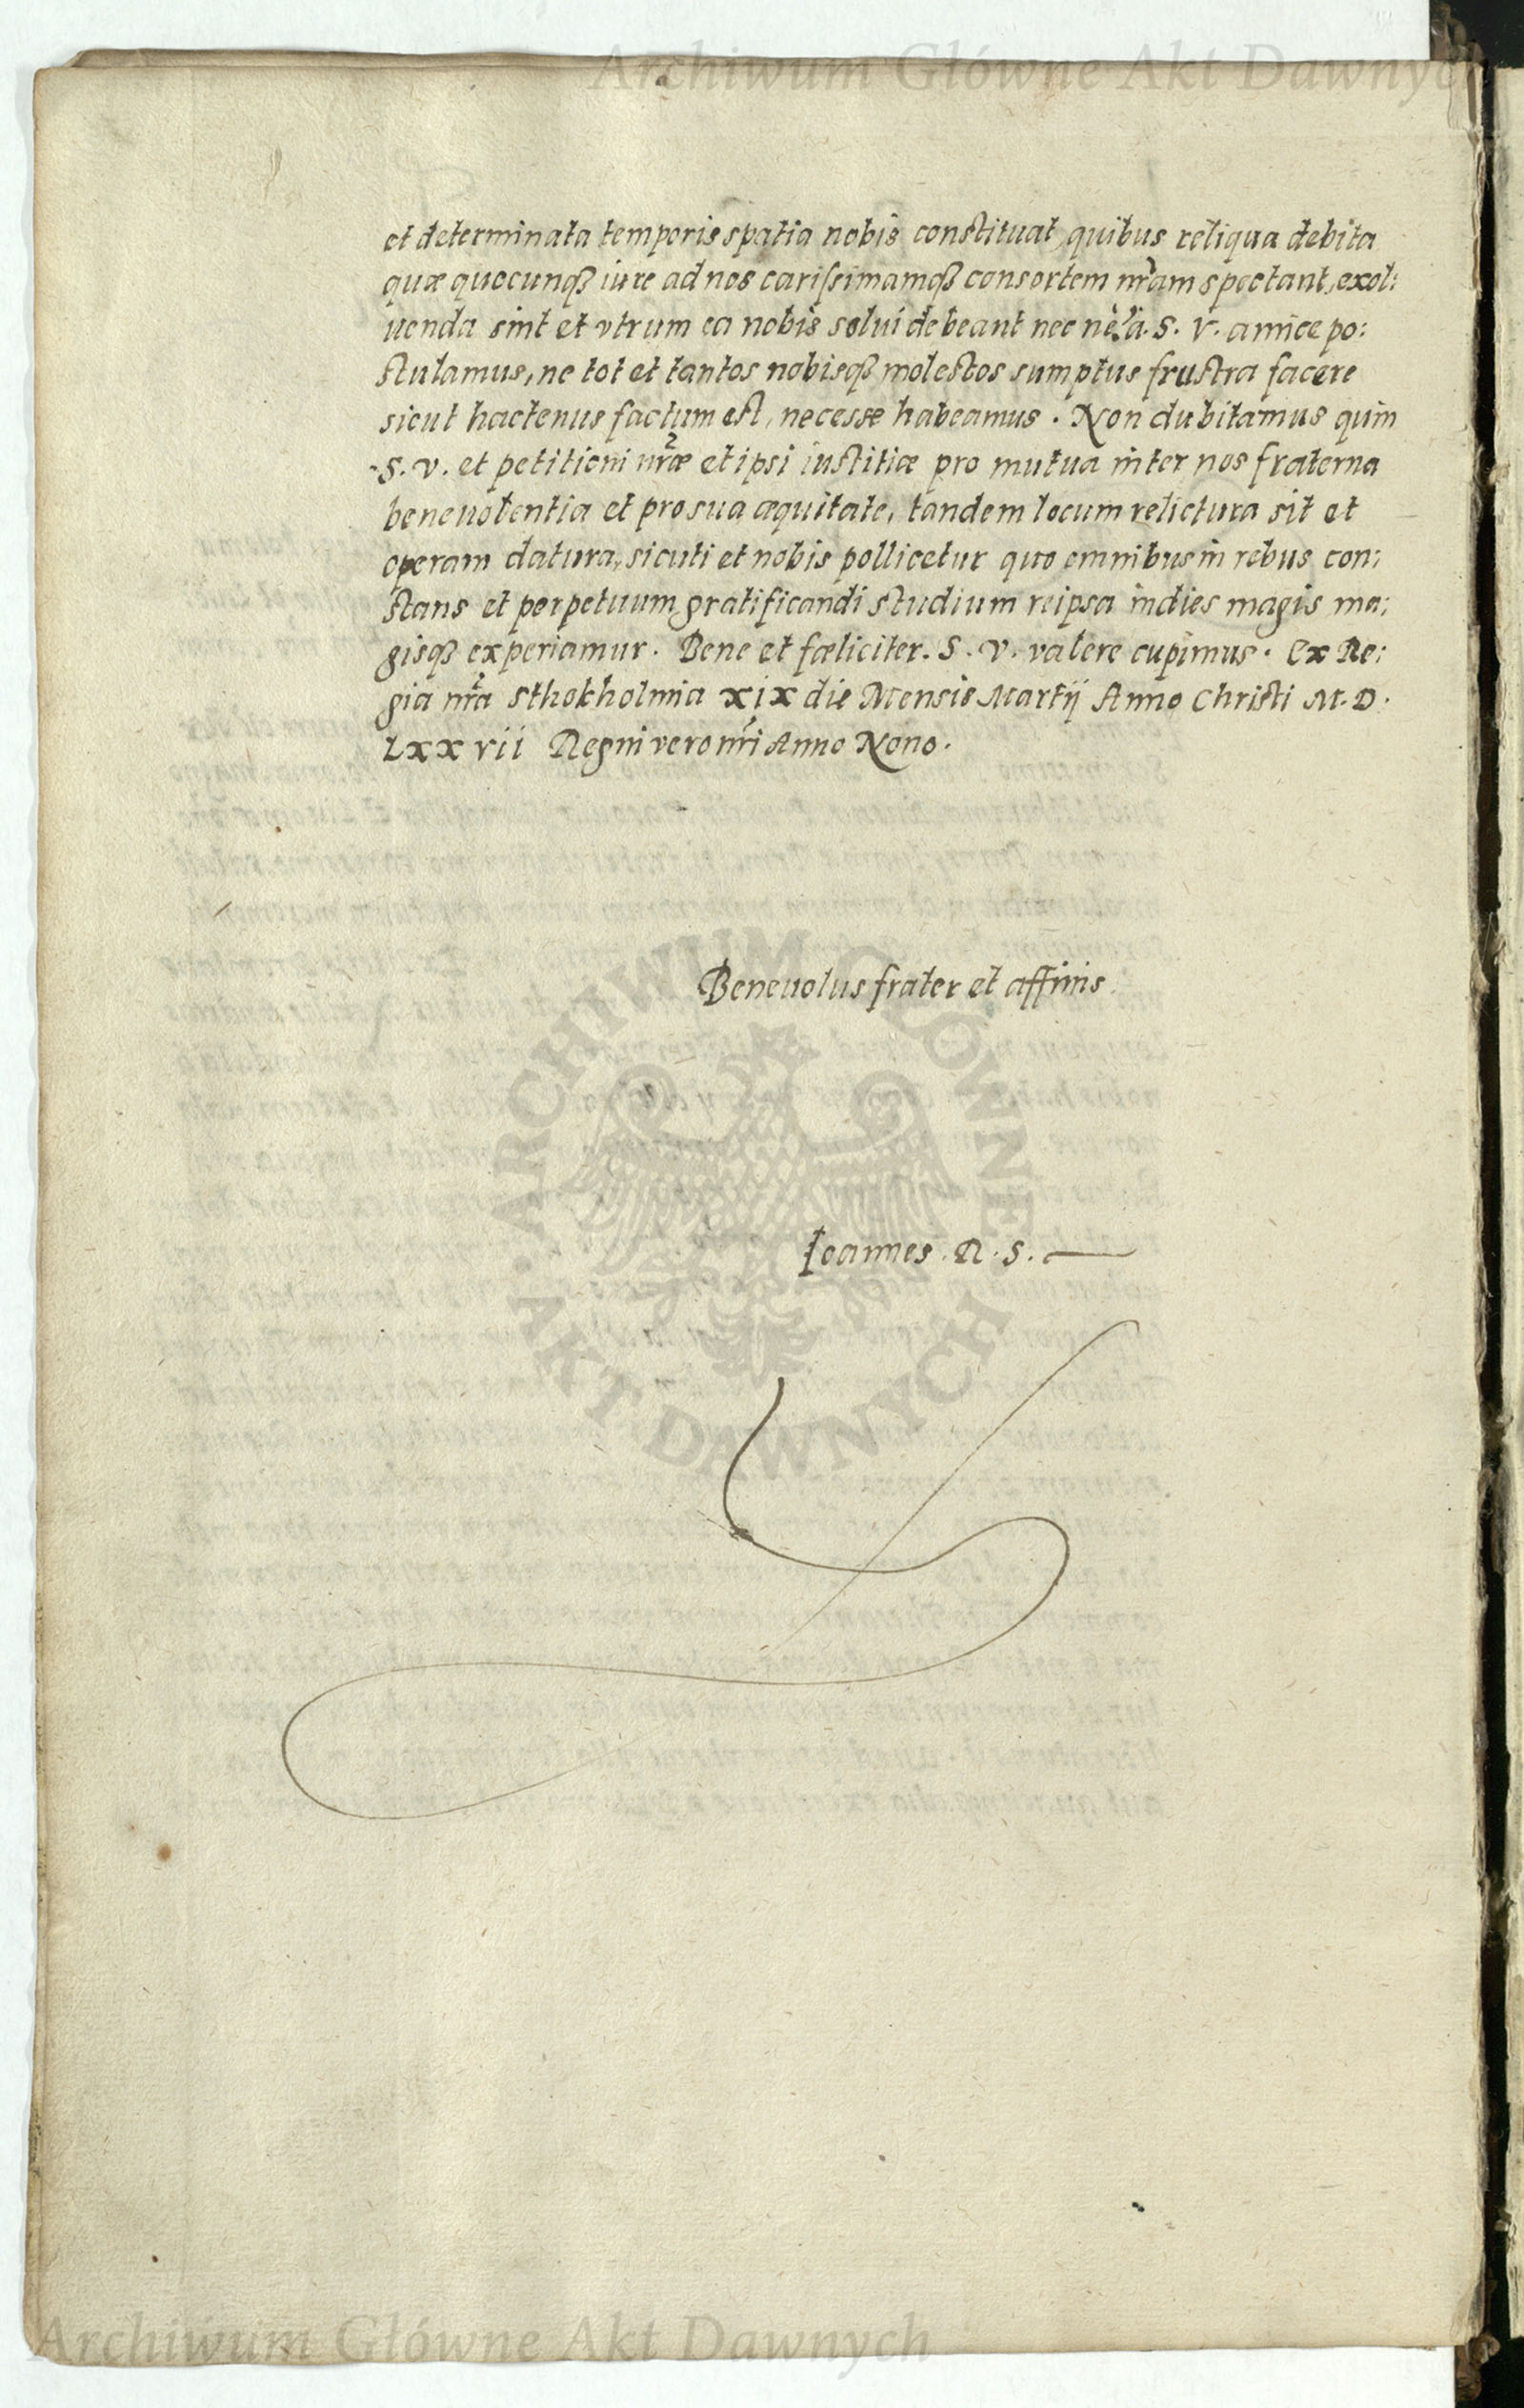 Archiwum Główne Akt Dawnych
et determinata temporis spatia nobis constituat, quibus reliqua debita
quæ quocunqȝ iure ad nos carissimamqȝ consortem nr̃am spectant, exol:
uenda sint et vtrum ea nobis solui debeant nec ne. a. S. V. amice po:
stulamus, ne tot et tantos nobisqȝ molestos sumptus frustra facere
sicut hactenus factum est, necesse habeamus. Non dubitamus quin
S. V. et petitioni nr̃æ et ipsi iustitiæ pro mutua inter nos fraterna
beneuolentia et pro sua æquitate, tandem locum relictura sit et
operam datura, sicuti et nobis pollicetur quo omnibus in rebus con:
stans et perpetuum gratificandi studium reipsa indies magis ma:
gisqȝ experiamur. Bene et fœliciter. S. V. valere cupimus. Ex Re:
gia nr̃a Sthokholmia xix die Mensis Martij Anno Christi M. D.
Lxx vii Regni vero nr̃i Anno Nono.
Beneuolus frater et affinis.
ARCHIWUM GŁÓWNE
AKT DAWNYCH
Ioannes. R. S.
Archiwum Główne Akt Dawnych